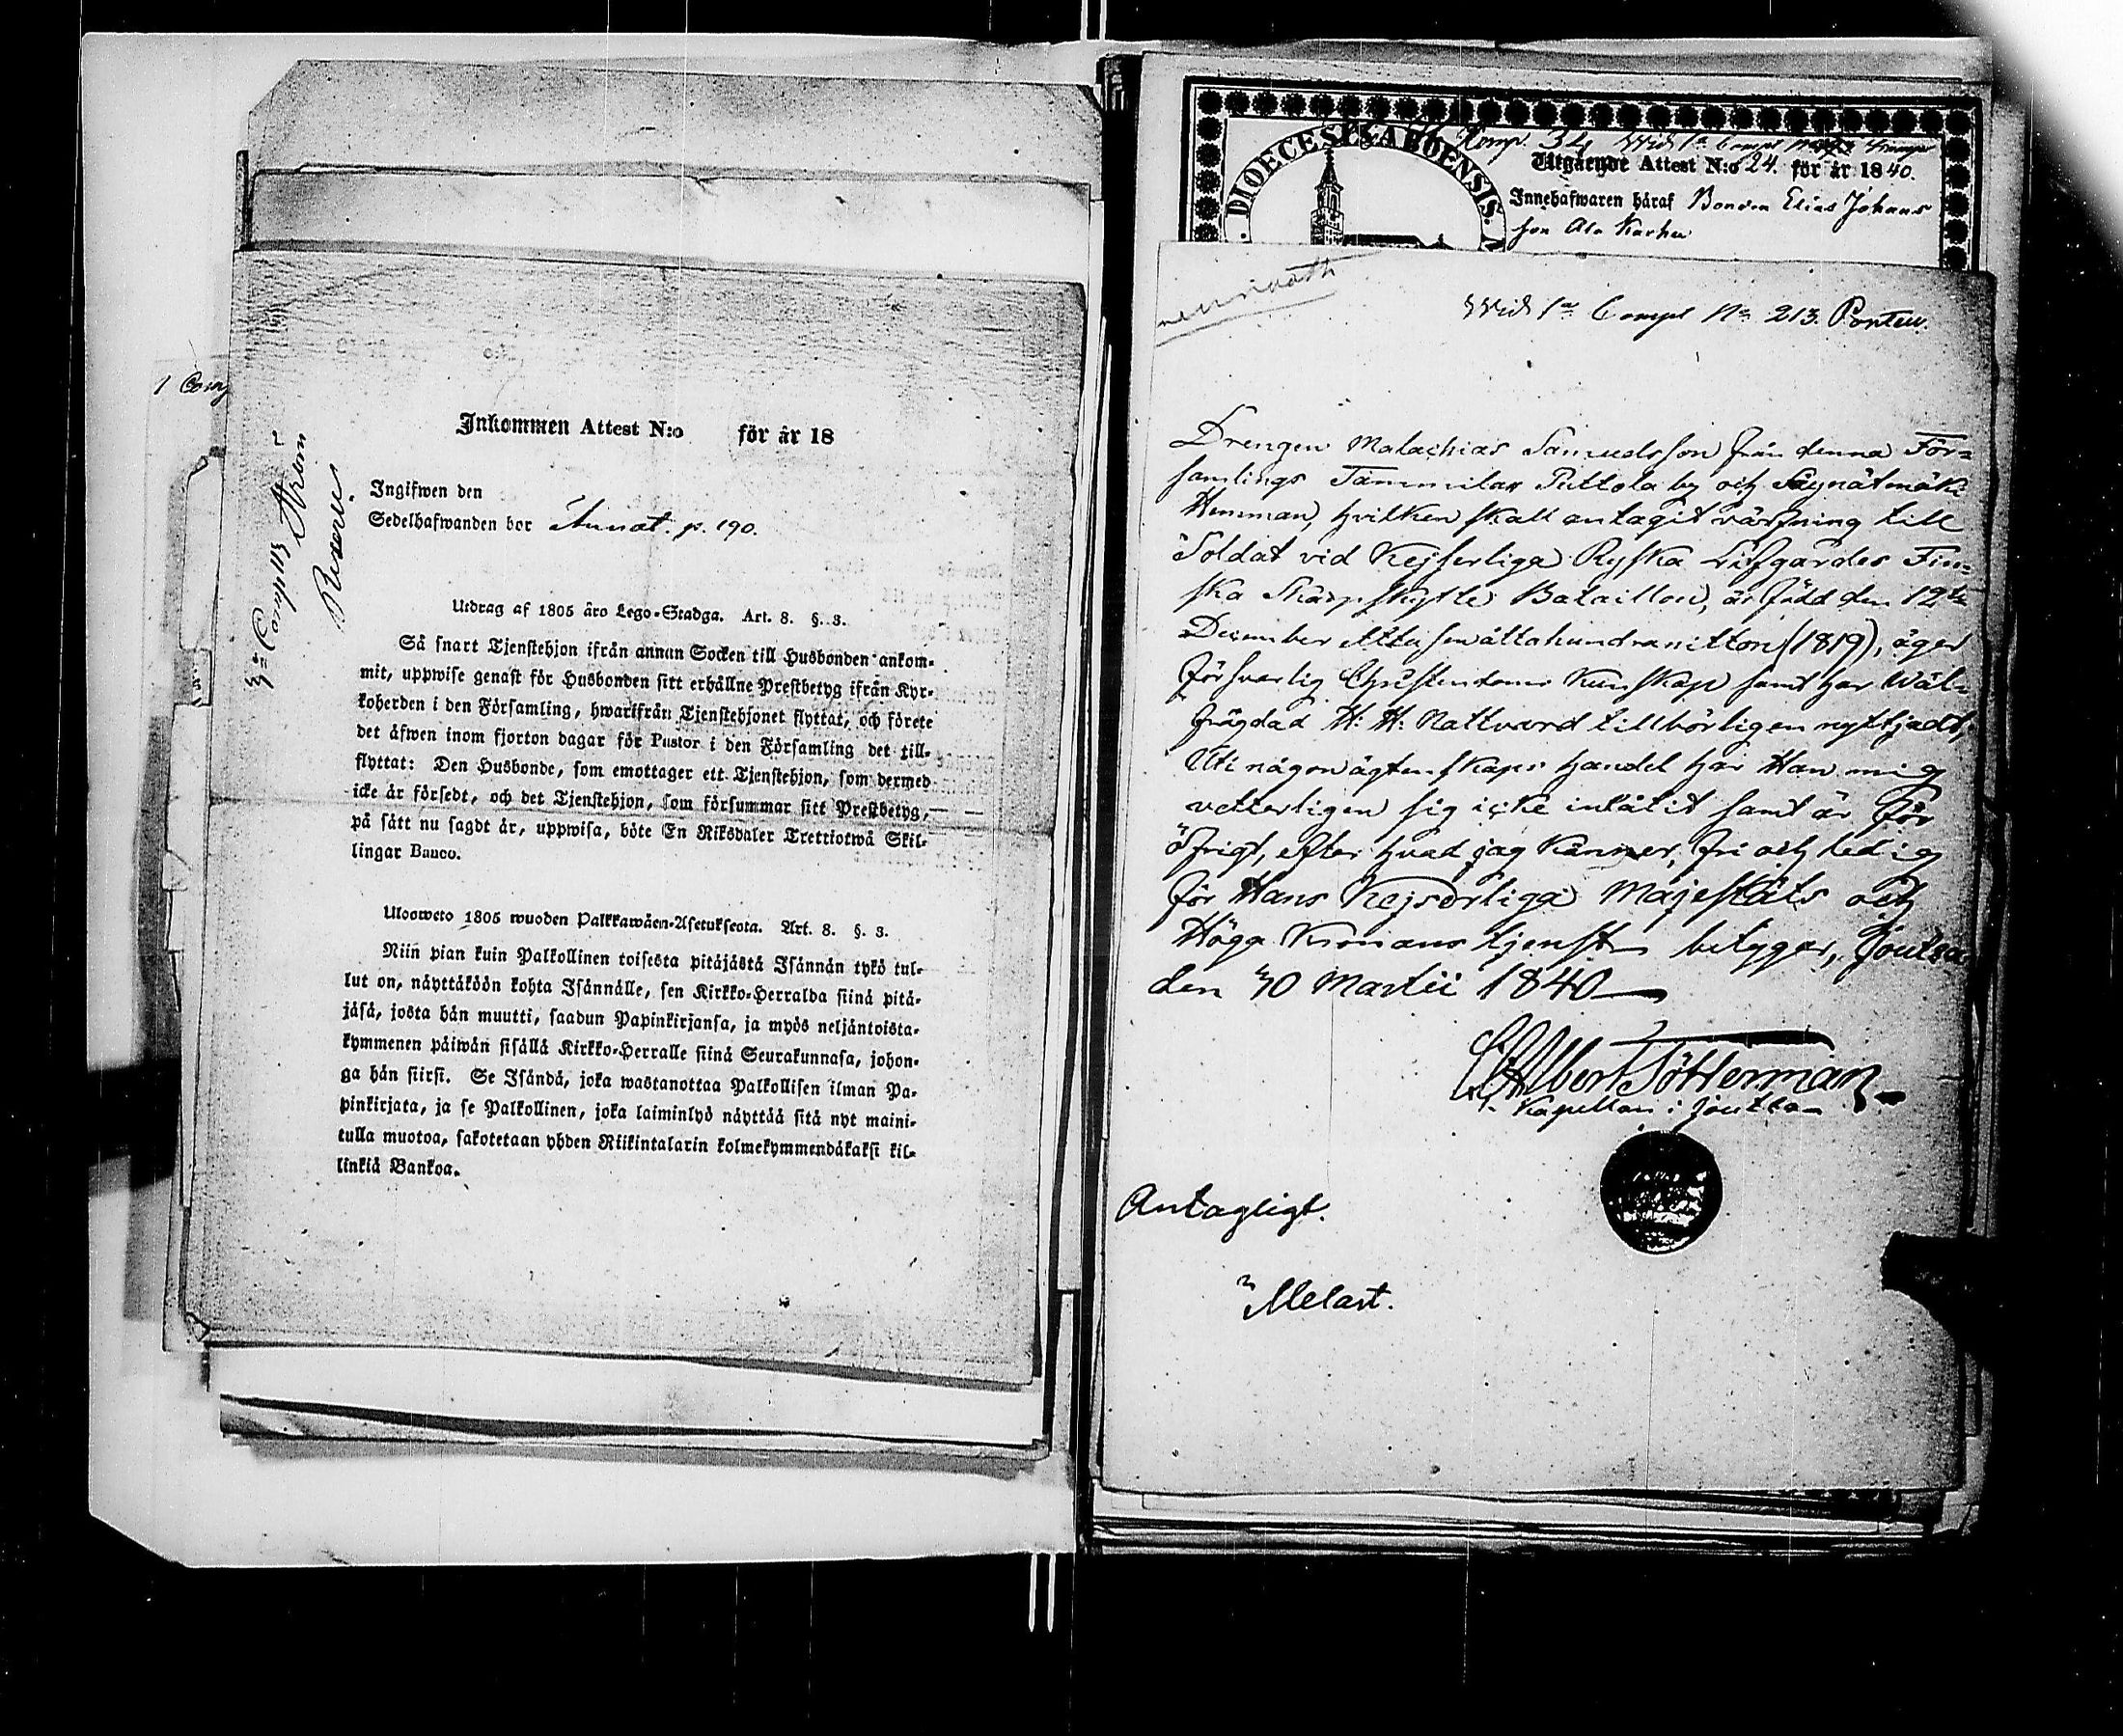 1 Comp
3=Compani
Ström
Reserv.
Inkommen Attest N:o för år 18
Ingifwen den
Sedelhafwanden bor Annat. p. 190.
Utdrag af 1805 åro Lego-Stadga. Art. 8. §. 3.
Så snart Tjenstehjon ifrån annan Socken till Husbonden ankom-
mit, uppwise genast för Husbonden sitt erhållne Prestbetyg ifrån Kyr-
koherden i den Församling, hwarifrån Tjenstehjonet flyttat, och förete
det äfwen inom fjorton dagar för Pastor i den Församling det till-
flyttat: Den Husbonde, som emottager ett Tjenstehjon, som dermed
icke är försedt, och det Tjenstehjon, som försummar sitt Prestbetyg,
på sätt nu sagdt är, uppwisa, böte En Riksdaler Trettiotwå Skil-
lingar Banco.
Ulosweto 1805 wuoden Palkkawäen-Asetuksesta. Art. 8. §. 3.
Niin pian kuin Palkollinen toisesta pitäjästä Isännän tykö tul-
lut on, näyttäköön kohta Isännälle, sen Kirkko-Herralda siinä pitä-
jäsä, josta hän muutti, saadun Papinkirjansa, ja myös neljäntoista-
kymmenen päiwän sisällä Kirkko-Herralle siinä Seurakunnasa, johon-
ga hän siirsi. Se Isändä, joka wastanottaa Palkollisen ilman Pa-
pinkirjata, ja se Palkollinen, joka laiminlyö näyttää sitä nyt maini-
tulla muotoa, sakotetaan yhden Riikintalarin kolmekymmendäkaksi kil-
linkiä Bankoa.
DIOECESIS ABOENSIS.
Komp. 34 Wid 1a Compt
Utgående Attest N:o 24. för år 1840.
Innehafwaren häraf Bonden Elias Johans
son Ala Karhu
Wid 1a Compt No 213. Ponteu.
Drengen Malachias Samuelsson från denna För=
samlings Tammilax Puttola by och Säynätmäki
Hemman, hvilken skall antagit värfning till
Soldat vid Kejserliga Ryska Lifgardes Fin=
ska Skarpskytte Bataillon, är född den 12te
December ettusenåttahundranitton (1819), äger
försvarlig Christendoms Kunskap samt har Wäl-
frägdad H: H: Nattvard tillbörligen nyttjadt,
Uti någon ägtenskaps handel har Han mig
vetterligen sig icke inlåtit samt är för
öfrigt, efter hvad jag känner, fri och ledig
för Hans Kejserliga Majestäts och
Höga Kronans tjenst betygar, Joutsa
den 30 Martii 1840
Albert Sötterman
Kapellan i Joutsa
Antagligt.
Melart.